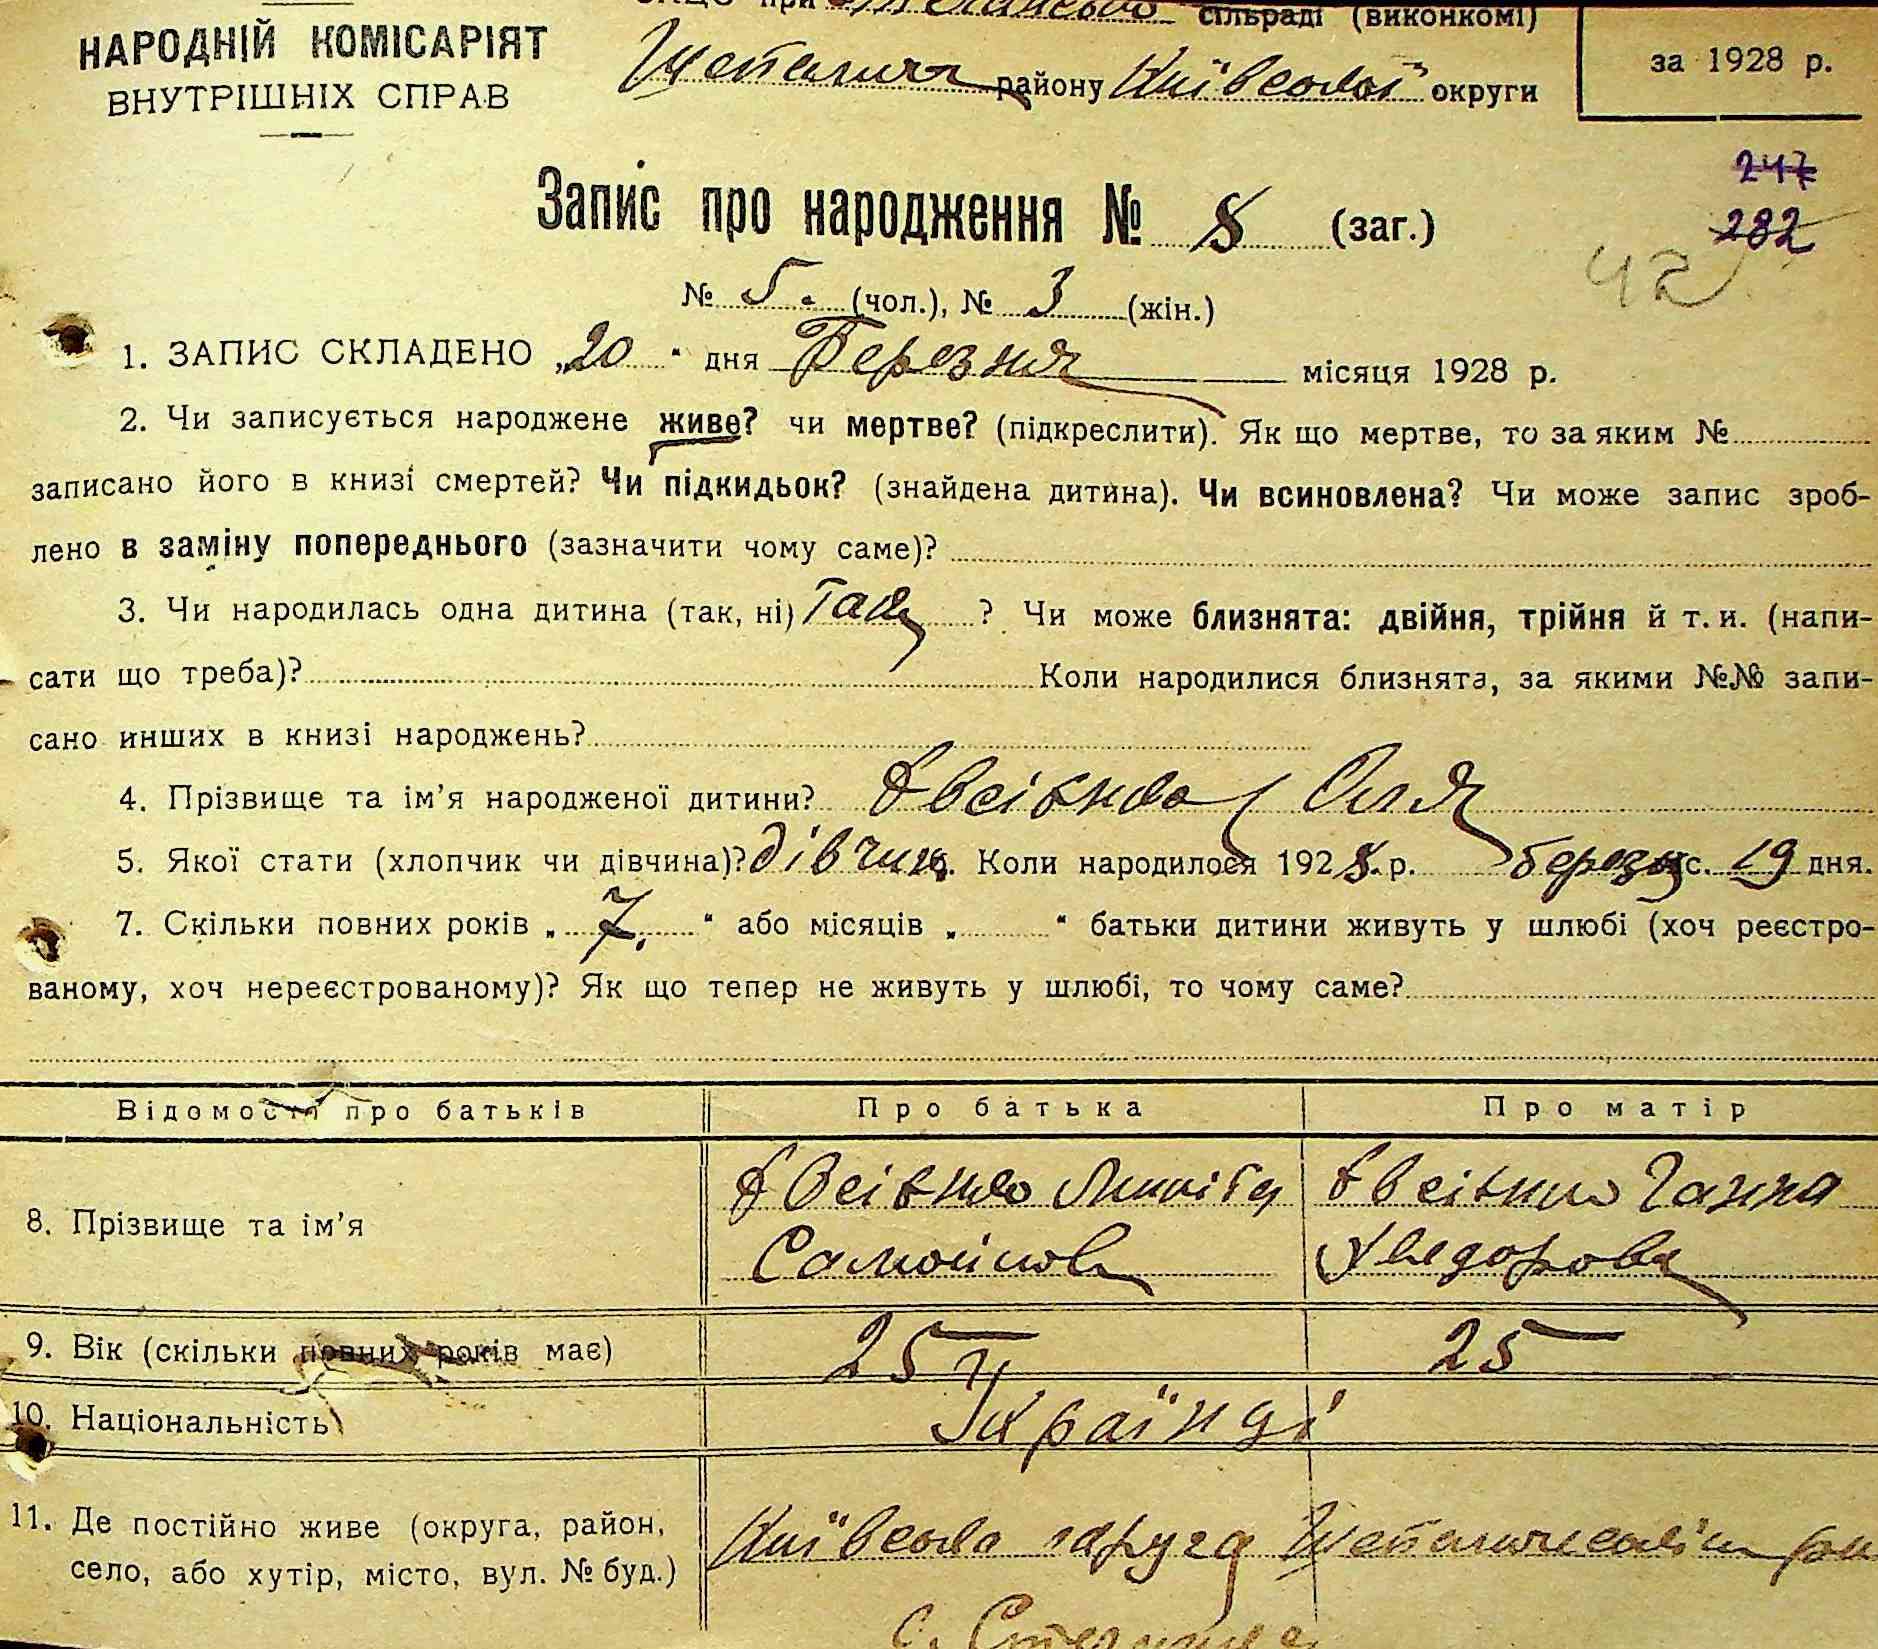 НАРОДНІЙ КОМІСАРІЯТ
ВНУТРІШНІХ СПРАВ
ЗАЦС при сільраді (виконкомі)
району Київської округи
за 1928 р.
247
232
42
Запис про народження № 8 (заг.)
№ 5. (чол.), № 3 (жін.)
1. ЗАПИС СКЛАДЕНО „20 “ дня Березня місяця 1928 р.
2. Чи записується народжене живе? чи мертве? (підкреслити). Як що мертве, то за яким №
записано його в книзі смертей? Чи підкидьок? (знайдена дитина). Чи всиновлена? Чи може запис зроб-
лено в заміну попереднього (зазначити чому саме)?
3. Чи народилась одна дитина (так, ні) Так ? Чи може близнята: двійня, трійня й т. и. (напи-
сати що треба)? Коли народилися близнята, за якими №№ запи-
сано инших в книзі народжень?
4. Прізвище та ім’я народженої дитини? Овсієнко Оля
5. Якої стати (хлопчик чи дівчина)? дівчина. Коли народилося 1928. р. березня с. 19 дня.
7. Скільки повних років „ 7. “ або місяців „ “ батьки дитини живуть у шлюбі (хоч реєстро-
ваному, хоч нереєстрованому)? Як що тепер не живуть у шлюбі, то чому саме?
Відомости про батьків Про батька Про матір
8. Прізвище та ім’я
Микіта Ганна
Самойлов Хведорова
9. Вік (скільки повних років має) 25 25
10. Національність Українці
11. Де постійно живе (округа, район,
село, або хутір, місто, вул. № буд.)
Київська округа
с.